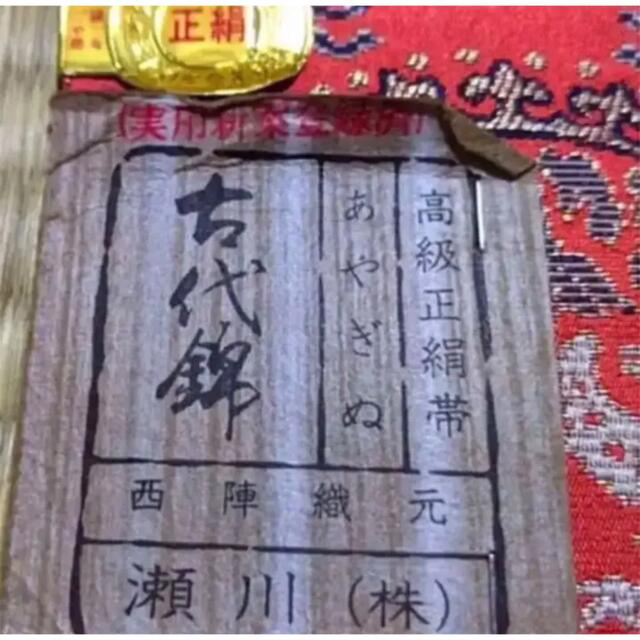 正絹
(実用新案登録済)
高級正絹帯
あやぎぬ
古代錦
西陣織元
瀬川(株)